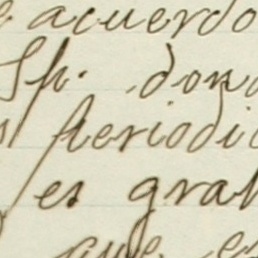 e acuerdo
Sr. don
periodi
es grat
que es